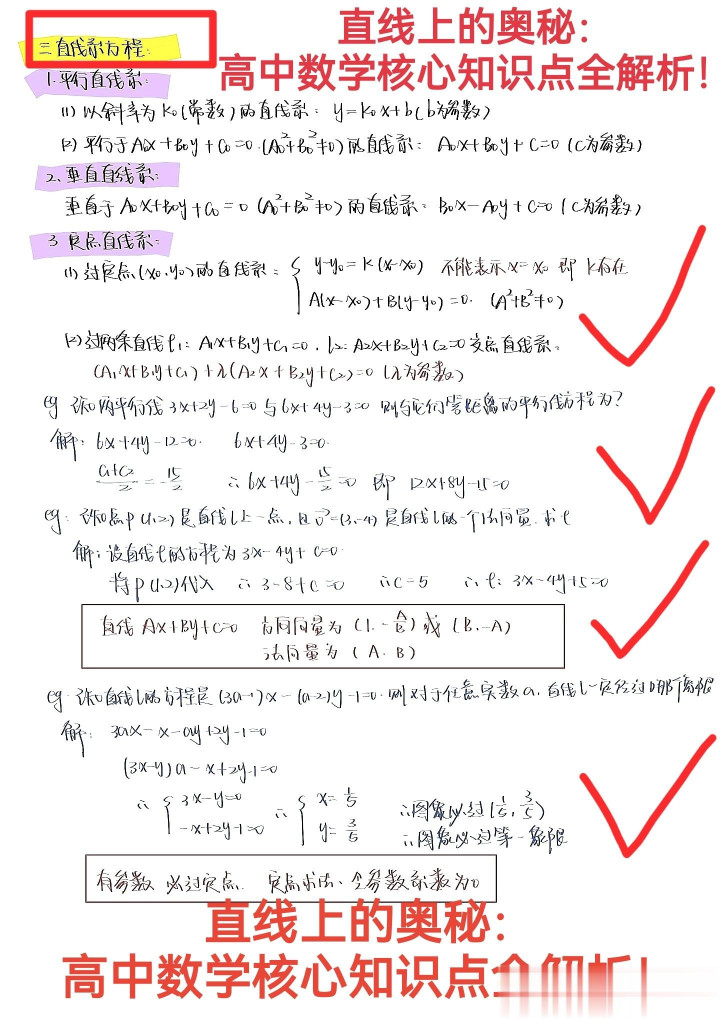 直线上的奥秘:
高中数学核心知识点全解析!
三.直线系方程:
1.平行直线系:
(1) 以斜率为K₀(常数)的直线系: y=K₀x+b(b为参数)
(2) 平行于A₀x+B₀y+C₀=0 (A₀²+B₀²≠0)的直线系: A₀x+B₀y+C=0 (C为参数)
2.垂直直线系:
垂直于A₀x+B₀y+C₀=0 (A₀²+B₀²≠0)的直线系: B₀x-A₀y+C=0 (C为参数)
3 定点直线系:
(1) 过定点(x₀,y₀)的直线系: { y-y₀=K(x-x₀) 不能表示x=x₀ 即 k存在
A(x-x₀)+B(y-y₀)=0. (A²+B²≠0)
(2)过两条直线l₁: A₁x+B₁y+C₁=0, l₂: A₂x+B₂y+C₂=0交点直线系:
(A₁x+B₁y+C₁)+λ(A₂x+B₂y+C₂)=0 (λ为参数)
eg 已知两平行线3x+2y-6=0与6x+4y-3=0 则与它们等距离的平行线方程为?
解: 6x+4y-12=0. 6x+4y-3=0.
(C₁+C₂)/2=-15/2 ∴6x+4y-15/2=0 即 12x+8y-15=0
eg: 已知点P(1,2)是直线l上一点,且v=(3,-4)是直线l的一个法向量.求l
解:设直线l的方程为3x-4y+c=0.
将P(1,2)代入 ∴3-8+c=0 ∴c=5 ∴l: 3x-4y+5=0
直线Ax+By+C=0 方向向量为(1,-A/B)或(B,-A)
法向量为(A,B)
eg.已知直线l的方程是(3a-1)x-(a-2)y-1=0.则对于任意实数a,直线l一定经过哪个象限
解: 3ax-x-ay+2y-1=0
(3x-y)a-x+2y-1=0
∴{ 3x-y=0 ∴{ x=1/5 ∴图象必过(1/5,3/5)
-x+2y-1=0 y=3/5 ∴图象必过第一象限
有参数 必过定点. 定点求法:令参数系数为0
直线上的奥秘:
高中数学核心知识点全解析!